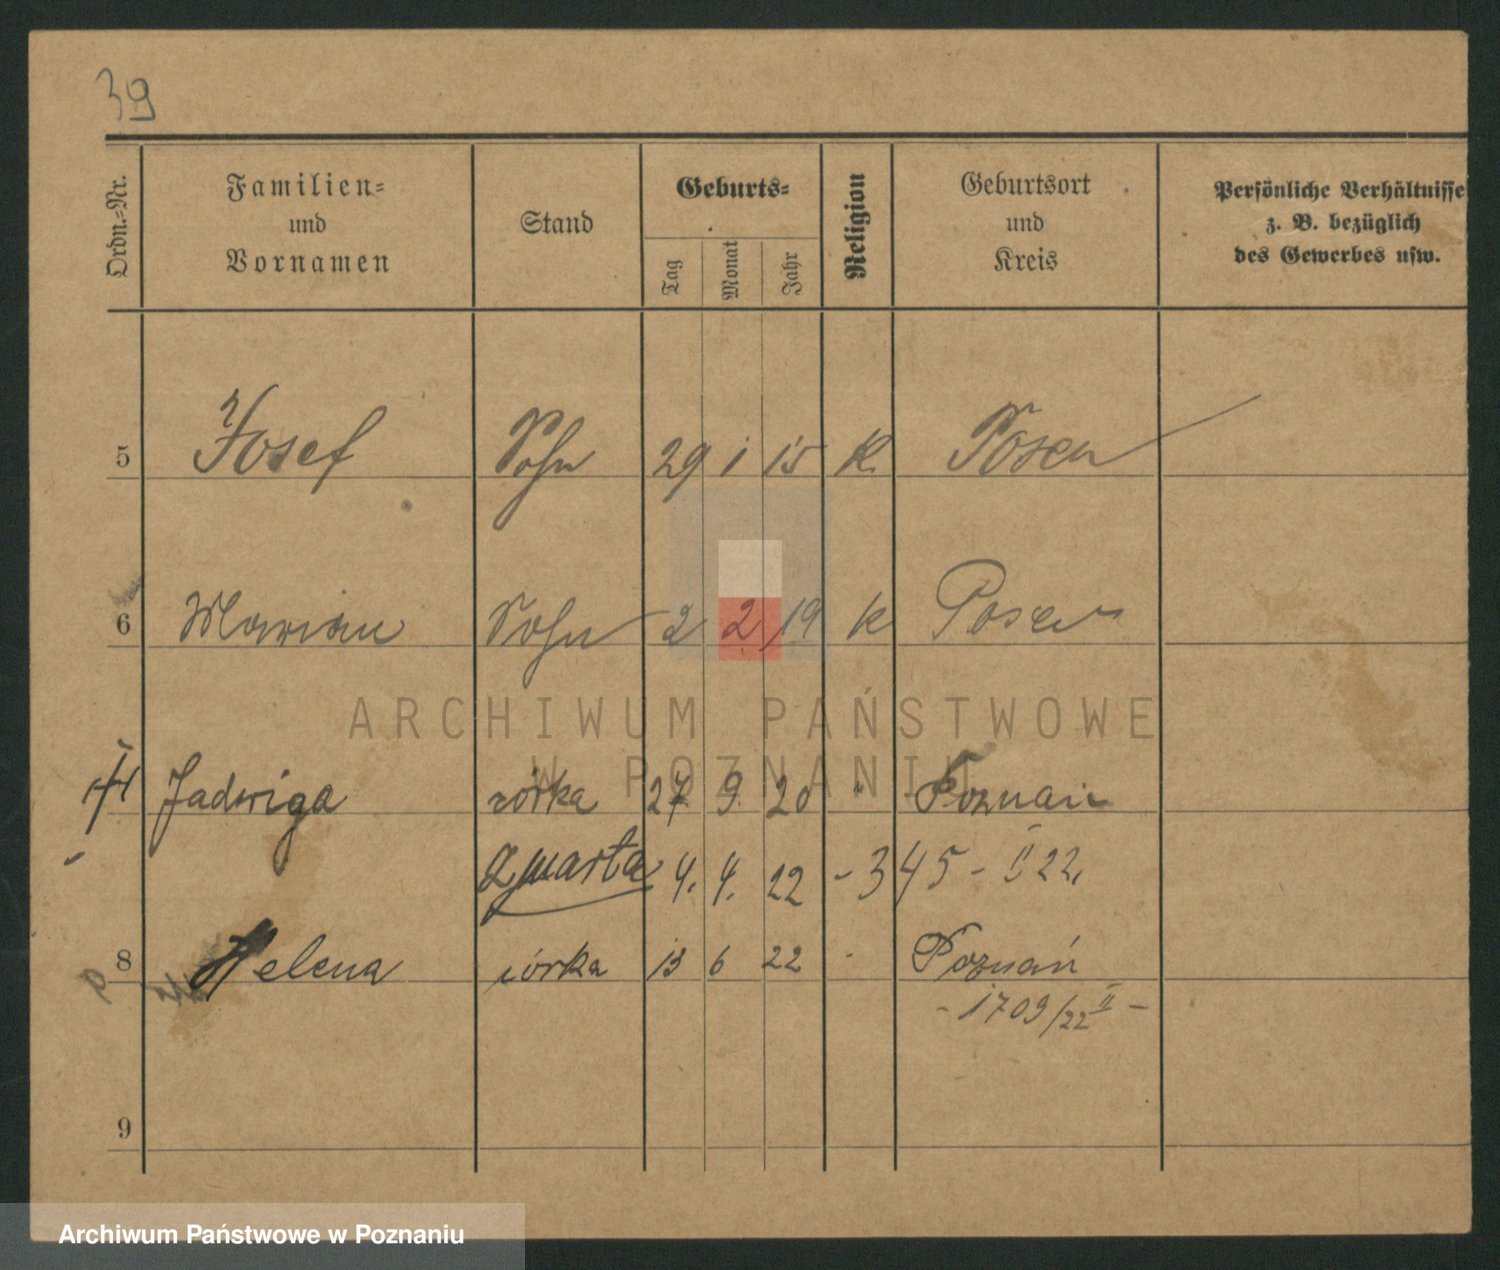 39
Ordn.-Nr.
Familien-
und
Vornamen
Stand
Geburts-
Tag
Monat
Jahr
Religion
Geburtsort
und
Kreis
Persönliche Verhältnisse
z. B. bezüglich
des Gewerbes usw.
5 Josef Sohn 29 1 15 K Posen
6 Marian Sohn 2 2 19 K Posen
Jadwiga córka 27 9 20 " Poznań
zmarła 4. 4. 22 - 345 - II 22.
8 Helena córka 13 6 22 - Poznań
- 1709/22 II -
9
ARCHIWUM PAŃSTWOWE
W POZNANIU
Archiwum Państwowe w Poznaniu